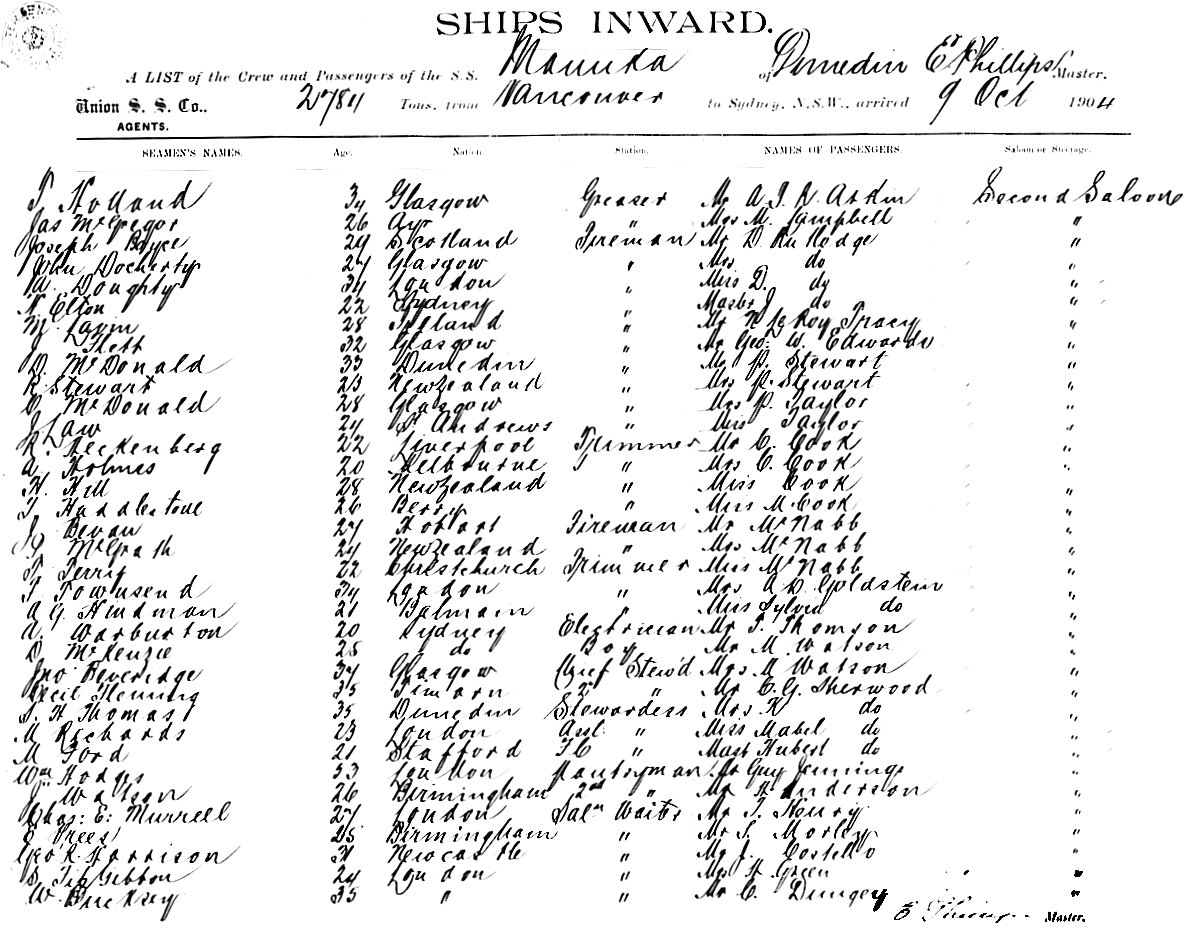 SHIPS INWARD.
A LIST of the Crew and Passengers of the S.S. Manuka of Dunedin E. Phillips Master.
Union S. S. Co., AGENTS. 2784 Tons, from Vancouver to Sydney, N.S.W., arrived 9 Oct 1904
SEAMEN'S NAMES. Age. Nation. Station. NAMES OF PASSENGERS. Saloon or Steerage.
T Holland 34 Glasgow Greaser Mr A Second Saloon
Jas McGregor 26 Ayr " Mrs M. Campbell "
Joseph 29 Scotland Fireman Mr D. Rutledge "
John Docherty 27 Glasgow " Mrs do "
W. Doughty 34 London " Miss D. do "
N Elton 22 Sydney " Master J do "
M. Lavin 28 Ireland " Mr N LeRoy Tracy "
32 Glasgow " Mr Geo. W. Edwards "
D. McDonald 33 Dunedin " Mr P. Stewart "
R Stewart 23 New Zealand " Mrs P. Stewart "
McDonald 28 Glasgow " Mrs P. Taylor "
J Law 24 St Andrews " Miss Taylor "
R. Heckenberg 22 Liverpool Trimmer Mr C. Cook "
A. Holmes 20 Melbourne " Mrs C. Cook "
H. Hill 28 New Zealand " Miss Cook "
T Haddlestone 26 Berry " Miss M Cook "
Bevan 27 Hobart Fireman Mr McNabb "
McGrath 24 New Zealand " Mrs McNabb "
T Terry 22 Christchurch Trimmer Miss McNabb "
T Townsend 34 London " Mrs A D. Goldstein "
A G. Hindman 21 Balmain " Miss Sylvia do "
A. Warburton 20 Sydney Electrician Mr T. Thomson "
D McKenzie 25 do Boy Mr M. Watson "
Jno Beveridge 37 Glasgow Chief Stew'd Mrs M Watson "
Cecil Fleming 35 Timaru 2nd " Mr C. G. Sherwood "
S. H Thomas 35 Dunedin Stewardess Mrs K do "
M Richards 23 London Asst. " Miss Mabel do "
M Ford 21 Stafford FC " Mast Hubert do "
Wm Hodgs 33 London Pantryman Mr Guy Jennings "
J Watson 26 Birmingham 2nd " Mr A Anderson "
Chas. E. Murrell 27 London Saln Waiter Mr T. Henry "
E Prees 25 Birmingham " Mr S. Morley "
Geo R. Harrison 31 Newcastle " Mr J. Costello "
S. FitzGibbon 24 London " Mrs H Green "
W. Bucksey 35 " " Mr C. Dungey "
E Phillips Master.